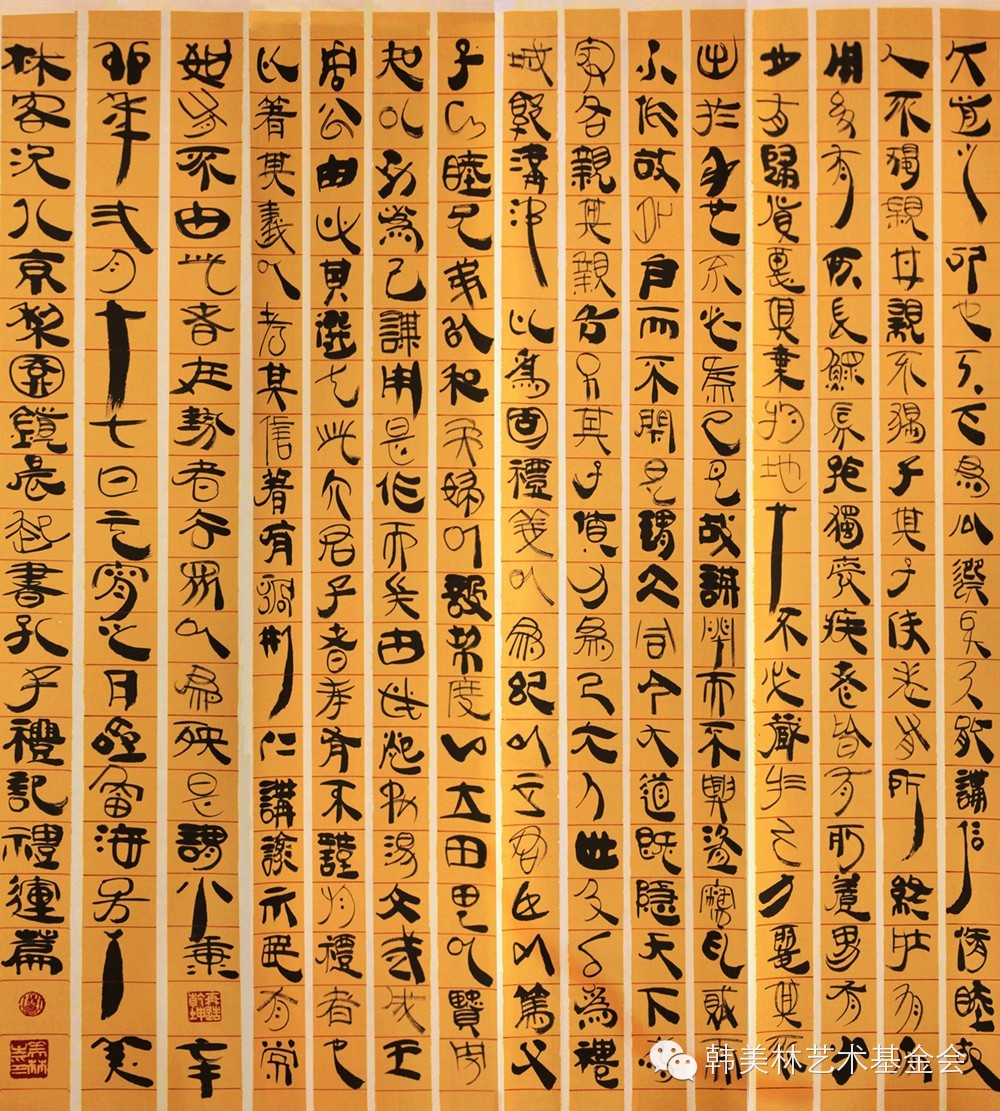 大道之行也天下為公選賢與能講信脩睦故
人不獨親其親不獨子其子使老有所終壯有所
用幼有所長鰥寡孤獨廢疾者皆有所養男有分
女有歸貨惡其棄於地也不必藏於己力惡其不
出於身也不必為己是故謀閉而不興盜竊亂賊而
不作故外戶而不閉是謂大同今大道既隱天下為
家各親其親各子其子貨力為己大人世及以為禮
城郭溝池以為固禮義以為紀以正君臣以篤父
子以睦兄弟以和夫婦以設制度以立田里以賢勇
知以功為己謀用是作而兵由此起禹湯文武成王
周公由此其選也此六君子者未有不謹於禮者也
以著其義以考其信著有過刑仁講讓示民有常
如有不由此者在勢者去眾以為殃是謂小康辛
卯年弍月十七日元宵之日海美
林客京梨園鎮晨起書孔子禮記禮運篇
韩美林艺术基金会